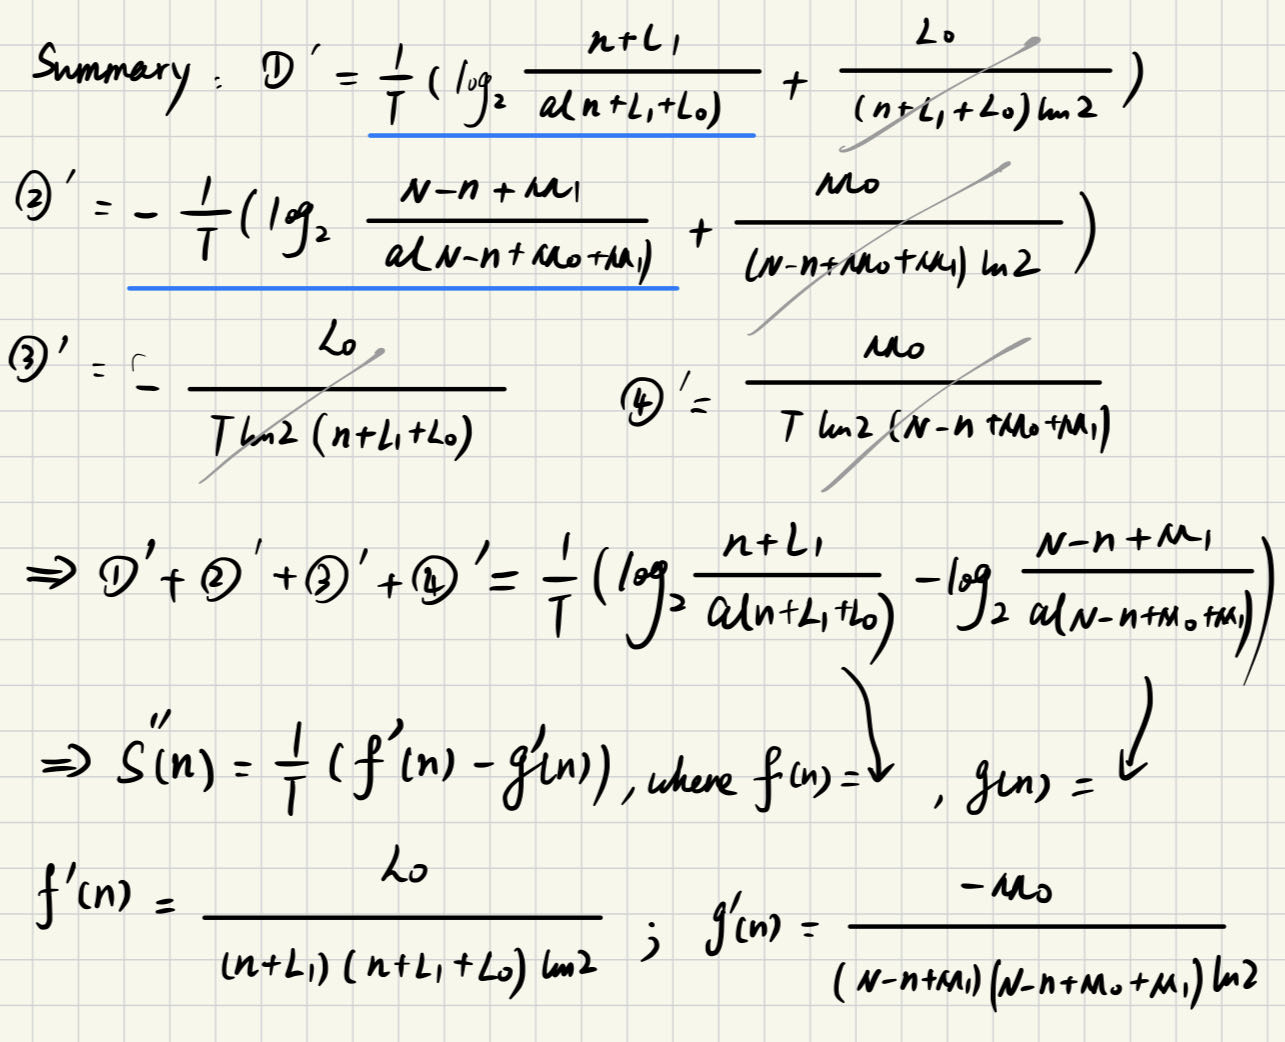 Summary: ①' = 1/T (log₂ (n+L₁)/(a(n+L₁+L₀)) + L₀/((n+L₁+L₀) ln2))
②' = - 1/T (log₂ (N-n+M₁)/(a(N-n+M₀+M₁)) + M₀/((N-n+M₀+M₁) ln2))
③' = - L₀/(T ln2 (n+L₁+L₀)) ④' = M₀/(T ln2 (N-n+M₀+M₁))
⇒ ①' + ②' + ③' + ④' = 1/T (log₂ (n+L₁)/(a(n+L₁+L₀)) - log₂ (N-n+M₁)/(a(N-n+M₀+M₁)))
⇒ S''(n) = 1/T (f'(n) - g'(n)), where f(n) = ↓, g(n) = ↓
f'(n) = L₀/((n+L₁)(n+L₁+L₀) ln2) ; g'(n) = -M₀/((N-n+M₁)(N-n+M₀+M₁) ln2)